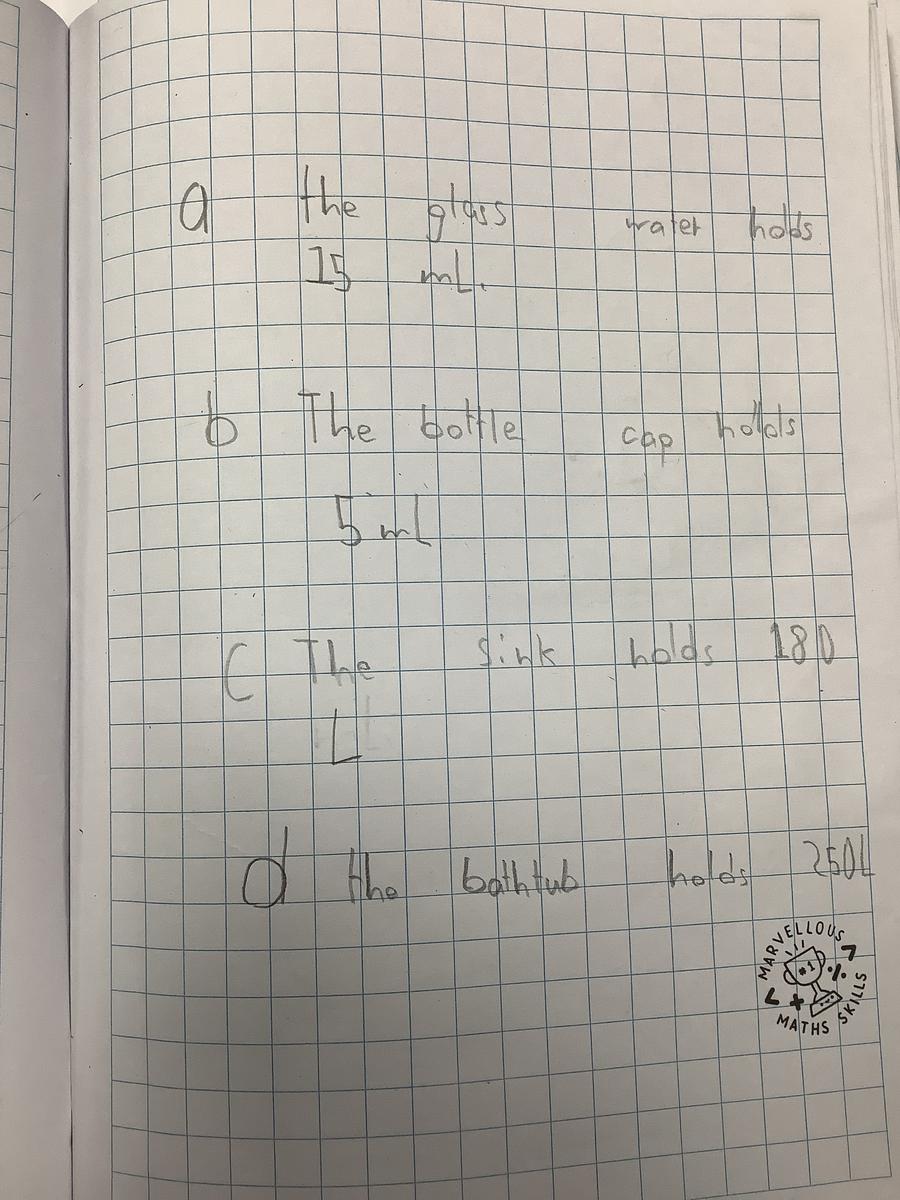 a the glass water holds
15 mL.
b The bottle cap holds
5 ml
C The sink holds 180
L
d the bathtub holds 250L
MARVELLOUS
#1
MATHS SKILLS